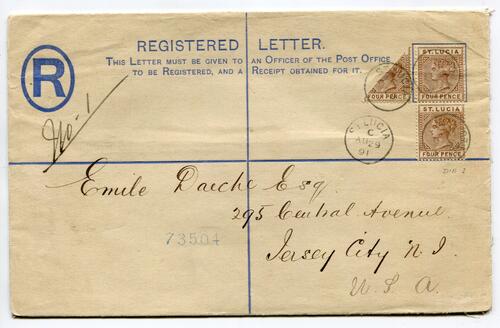 REGISTERED LETTER.
THIS LETTER MUST BE GIVEN TO AN OFFICER OF THE POST OFFICE
TO BE REGISTERED, AND A RECEIPT OBTAINED FOR IT.
R
No. 1
FOUR PENCE
ST. LUCIA
FOUR PENCE
ST. LUCIA
FOUR PENCE
ST. LUCIA
C
AU 29
91
Emile Daeche Esq
295 Central Avenue
73504
Jersey City N.J.
U.S.A.